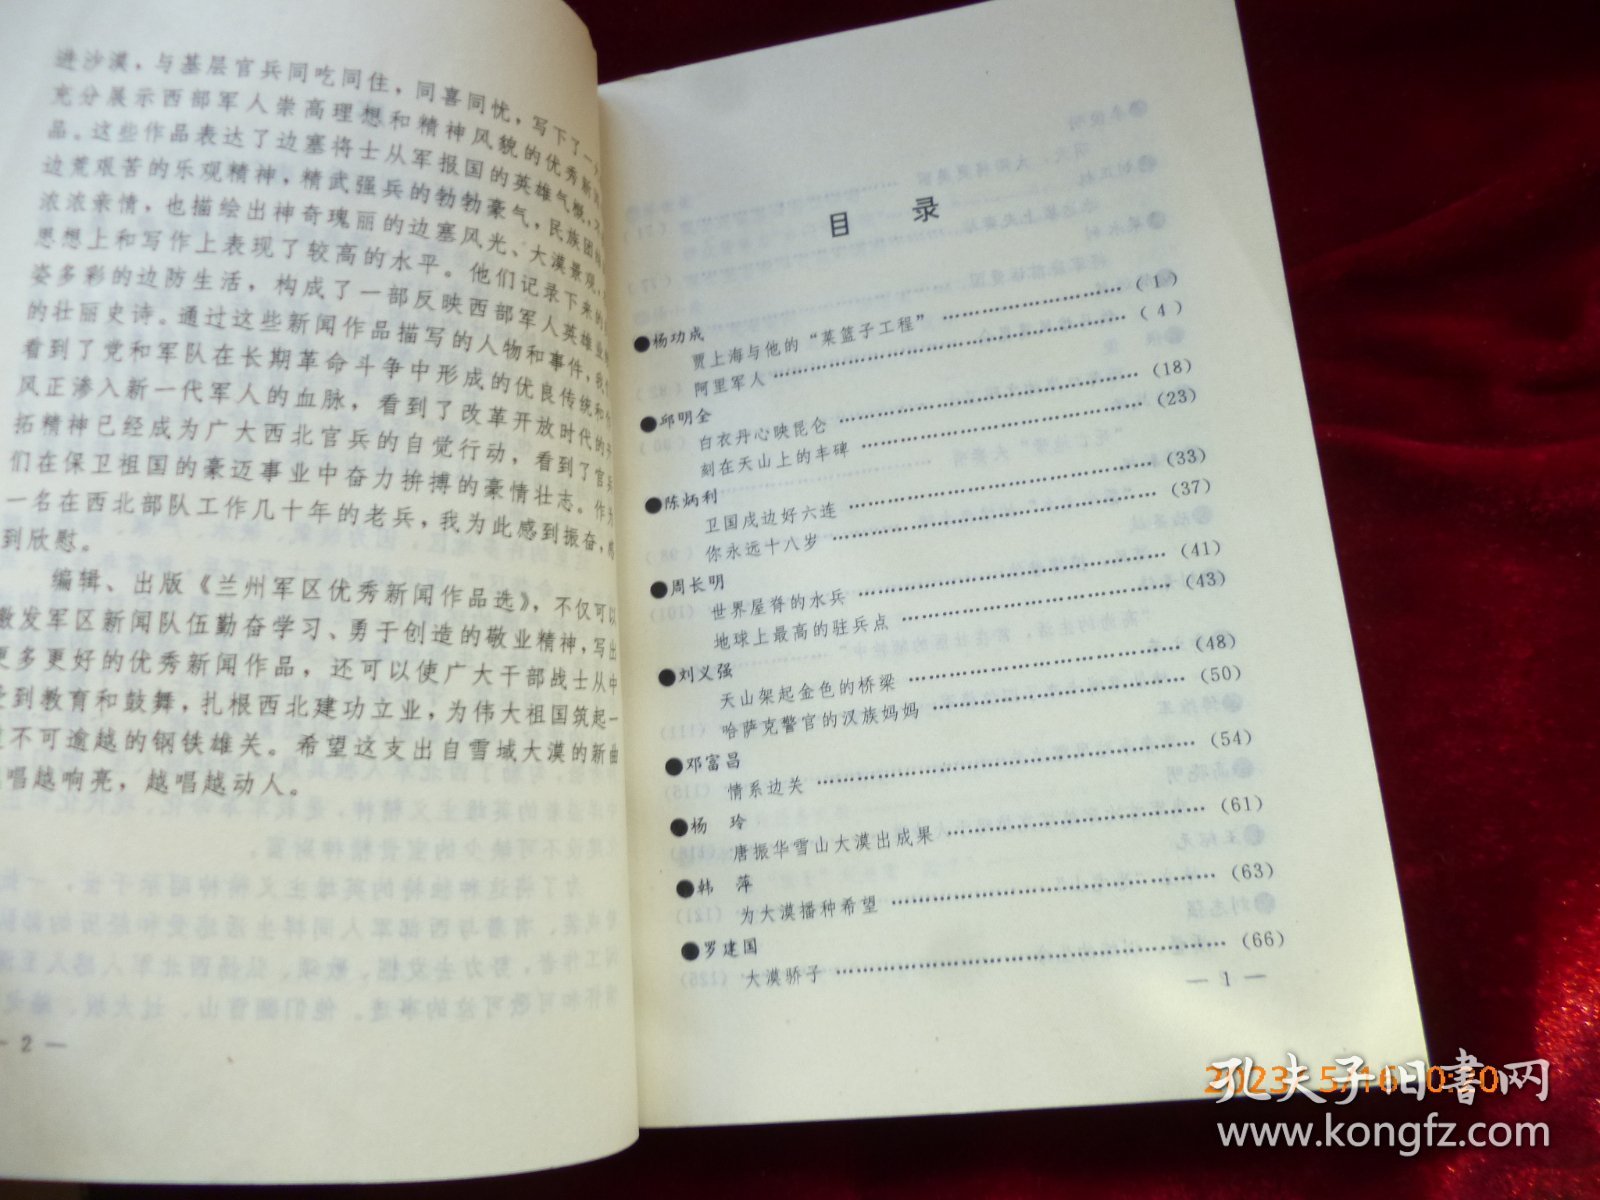 进沙漠，与基层官兵同吃同住，同喜同忧，写下了一
充分展示西部军人崇高理想和精神风貌的优秀新
品。这些作品表达了边塞将士从军报国的英雄气概，
边荒艰苦的乐观精神，精武强兵的勃勃豪气，民族团
浓浓亲情，也描绘出神奇瑰丽的边塞风光、大漠景观，
思想上和写作上表现了较高的水平。他们记录下来的
姿多彩的边防生活，构成了一部反映西部军人英雄业
的壮丽史诗。通过这些新闻作品描写的人物和事件，我
看到了党和军队在长期革命斗争中形成的优良传统和作
风正渗入新一代军人的血脉，看到了改革开放时代的开
拓精神已经成为广大西北官兵的自觉行动，看到了官兵
们在保卫祖国的豪迈事业中奋力拚搏的豪情壮志。作为
一名在西北部队工作几十年的老兵，我为此感到振奋，感
到欣慰。
编辑、出版《兰州军区优秀新闻作品选》，不仅可以
激发军区新闻队伍勤奋学习、勇于创造的敬业精神，写出
更多更好的优秀新闻作品，还可以使广大干部战士从中
受到教育和鼓舞，扎根西北建功立业，为伟大祖国筑起一
不可逾越的钢铁雄关。希望这支出自雪域大漠的新曲
唱越响亮，越唱越动人。
— 2 —
目 录
●杨功成
贾上海与他的“菜篮子工程” ……………………(1)
阿里军人 ……………………(4)
●邱明全
白衣丹心映昆仑 ……………………(18)
刻在天山上的丰碑 ……………………(23)
●陈炳利
卫国戍边好六连 ……………………(33)
你永远十八岁 ……………………(37)
●周长明
世界屋脊的水兵 ……………………(41)
地球上最高的驻兵点 ……………………(43)
●刘义强
天山架起金色的桥梁 ……………………(48)
哈萨克警官的汉族妈妈 ……………………(50)
●邓富昌
情系边关 ……………………(54)
●杨 玲
唐振华雪山大漠出成果 ……………………(61)
●韩 萍
为大漠播种希望 ……………………(63)
●罗建国
大漠骄子 ……………………(66)
— 1 —
孔夫子旧书网
www.kongfz.com